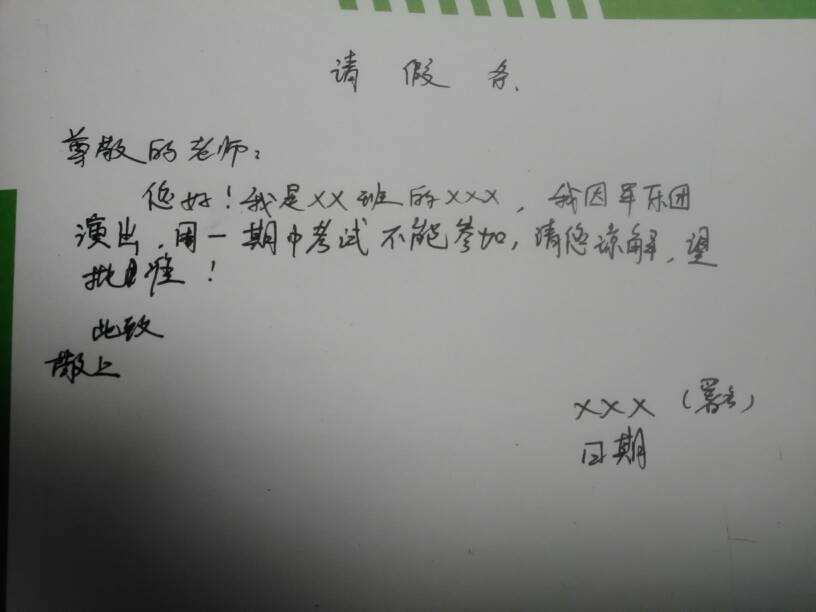 请假条
尊敬的老师：
您好！我是XX班的XXX，我因军乐团
演出，周一期中考试不能参加，请您谅解，望
批准！
此致
敬上
XXX（署名）
日期